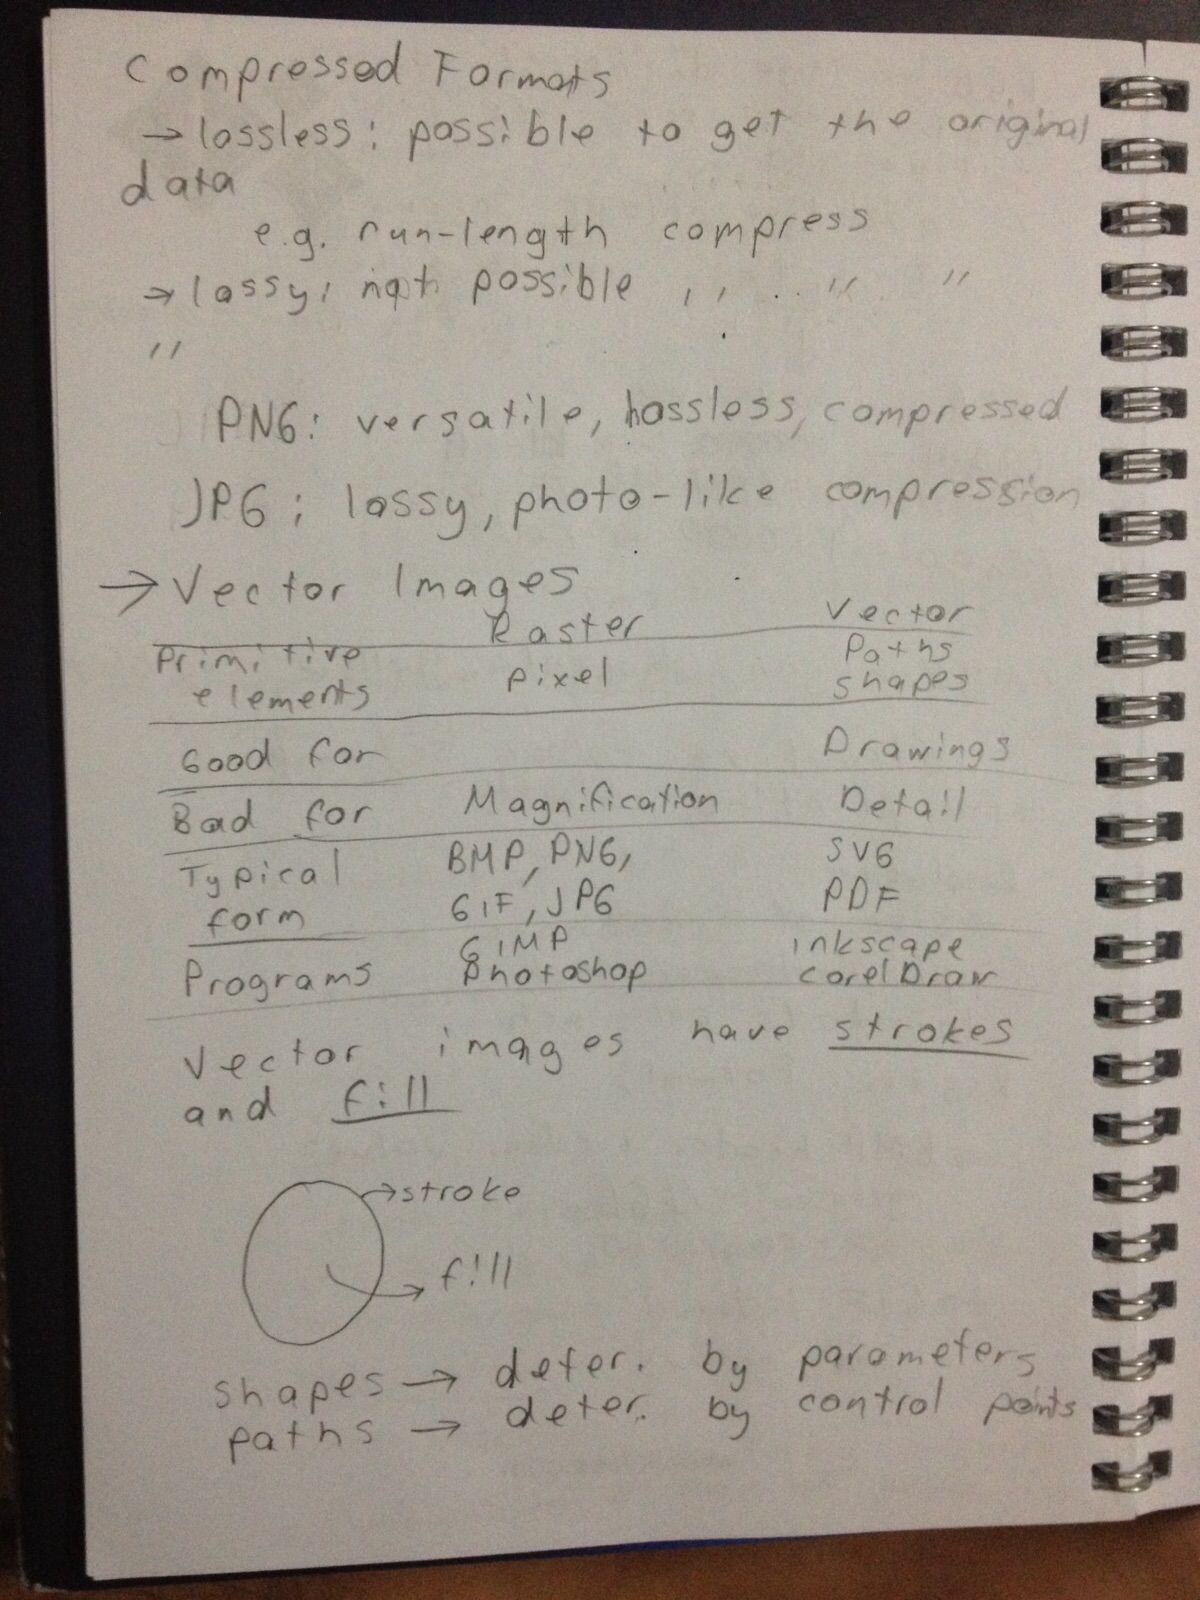 Compressed Formats
→ lossless: possible to get the original
data
e.g. run-length compress
→ lossy: not possible ,, .. " "
"
PNG: versatile, lossless, compressed
JPG: lossy, photo-like compression
→ Vector Images
Raster Vector
Primitive elements pixel Paths shapes
Good for Drawings
Bad for Magnification Detail
Typical BMP, PNG, SVG
form GIF, JPG PDF
GIMP inkscape
Programs Photoshop corelDraw
Vector images have strokes
and fill
→ stroke
→ fill
shapes → deter. by parameters
paths → deter. by control points